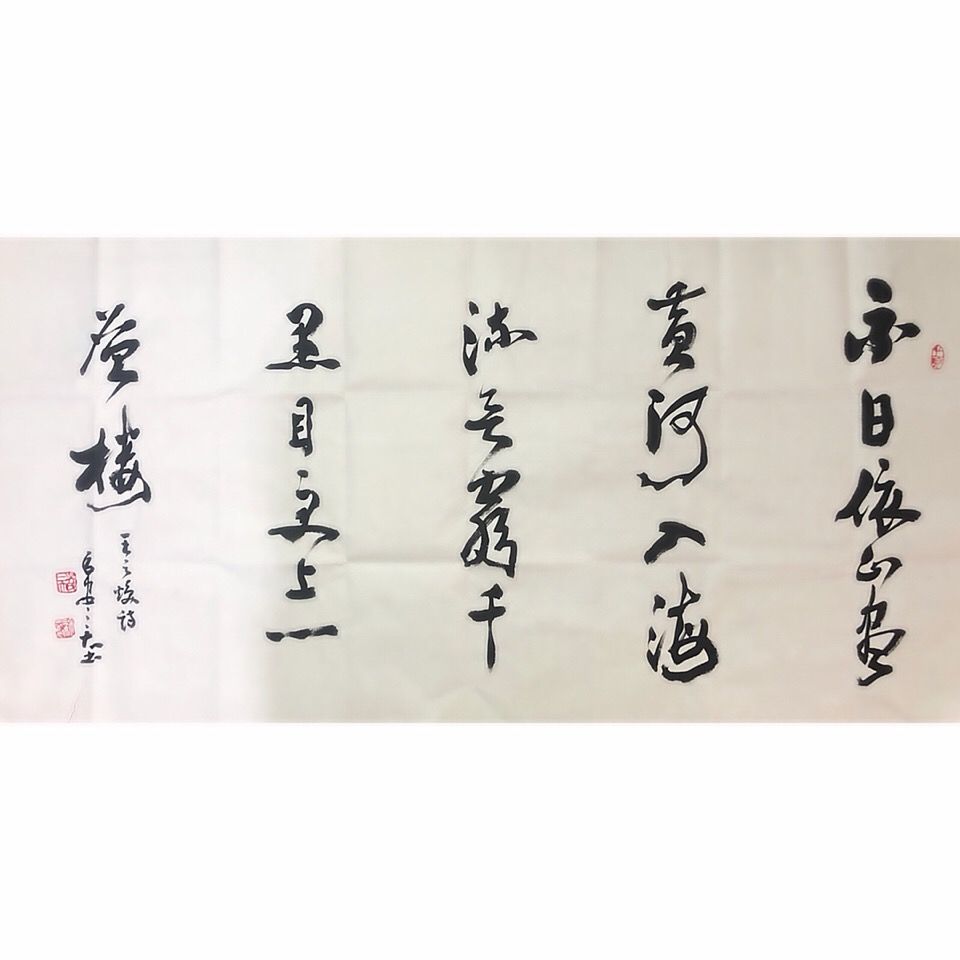 白日依山尽
黄河入海
流欲窮千
里目更上一
层楼
王之渙詩